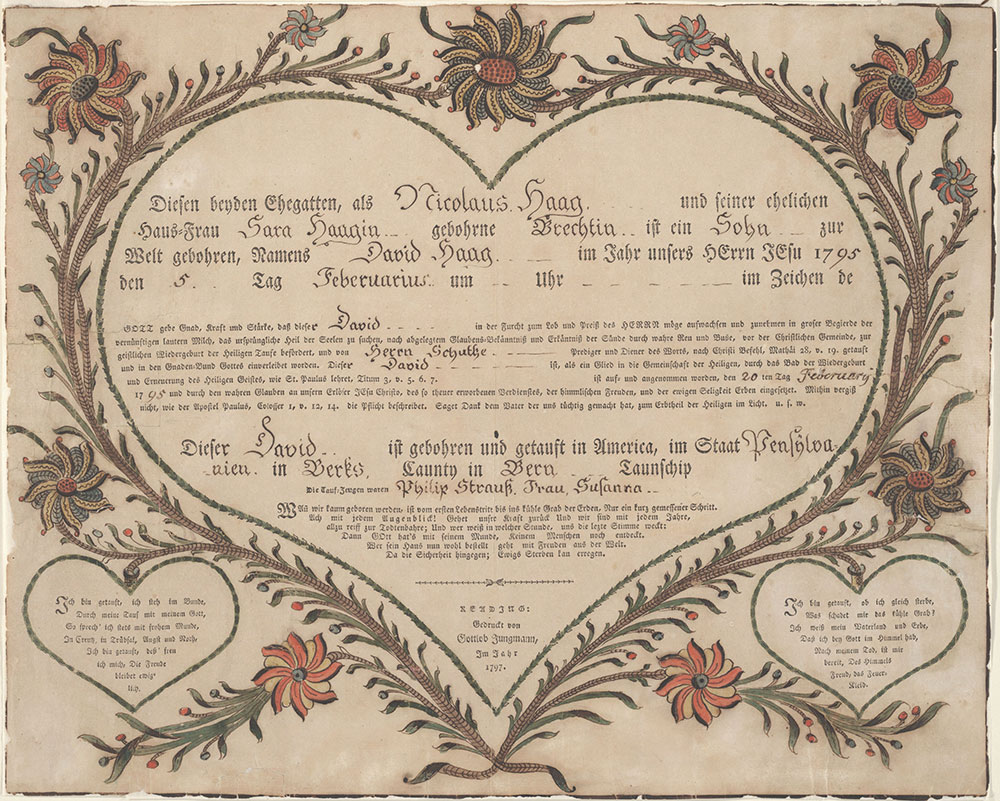 Diesen beyden Ehegatten, als Nicolaus Haag und seiner ehelichen
Haus-Frau Sara Haagin gebohrne Brechtin ist ein Sohn zur
Welt gebohren, Namens David Haag im Jahr unsers HErrn JEsu 1795
den 5. Tag Feberuarius um Uhr im Zeichen de
GOTT gebe Gnad, Kraft und Stärke, daß dieser David in der Furcht zum Lob und Preiß des HERRN möge aufwachsen und zunehmen in großer Begierde der
vernünftigen lautern Milch, das ursprüngliche Heil der Seelen zu suchen, nach abgelegtem Glaubens-Bekäntniß und Erkäntniß der Sünde durch wahre Reu und Buse, vor der Christlichen Gemeinde, zur
geistlichen Wiedergeburt der Heiligen Taufe befördert, und von Herrn Schulhe Prediger und Diener des Worts, nach Christi Befehl, Mathäi 28, v. 19. getauft
und in den Gnaden-Bund Gottes einverleibet worden. Dieser David ist, als ein Glied in die Gemeinschaft der Heiligen, durch das Bad der Wiedergeburt
und Erneuerung des Heiligen Geistes, wie St. Paulus lehret, Titum 3, v. 5. 6. 7. ist auf- und angenommen worden, den 20 ten Tag February
1795 und durch den wahren Glauben an unsern Erlöser JEsu Christo, des so theuer erworbenen Verdienstes, der himmlischen Freuden, und der ewigen Seligkeit Erben eingesetzt. Mithin vergiß
nicht, wie der Apostel Paulus, Colosser 1, v. 12, 14. die Pflicht beschreibet. Saget Dank dem Vater der uns tüchtig gemacht hat, zum Erbtheil der Heiligen im Licht. u. s. w.
Dieser David ist gebohren und getauft in America, im Staat Pensylva-
nien in Berks, Caunty in Bern Taunschip
Die Tauf-Zeugen waren Philip Strauß, Frau, Susanna
Wañ wir kaum geboren werden, ist vom ersten Lebenstritt bis ins kühle Grab der Erden, Nur ein kurz gemessener Schritt.
Ach mit jedem Augenblick! Gehet unsre Kraft zurück Und wir sind mit jedem Jahre,
allzu reiff zur Todtenbahre; Und wer weiß in welcher Stunde, uns die letzte Stimme weckt:
Dann GOtt hat's mit seinem Munde, Keinem Menschen noch entdeckt.
Wer sein Haus nun wohl bestellt geht mit Freuden aus der Welt.
Da die Sicherheit hingegen; Ewigs Sterben kan erregen.
READING:
Gedruckt von
Gottlob Jungmann,
Im Jahr
1797.
Ich bin getauft, ich steh im Bunde,
Durch meine Tauf mit meinem Gott,
So sprech' ich stets mit frohem Munde,
In Creutz, in Trübsal, Angst und Noth,
Ich bin getauft, des' freu
ich mich, Die Freude
bleibet ewig-
lich.
Ich bin getauft, ob ich gleich sterbe,
Was schadet mir das kühle Grab?
Ich weiß mein Vaterland und Erbe,
Das ich bey Gott im Himmel hab,
Nach meinem Tod, ist mir
bereit, Des Himmels
Freud, das Feuer-
Kleid.